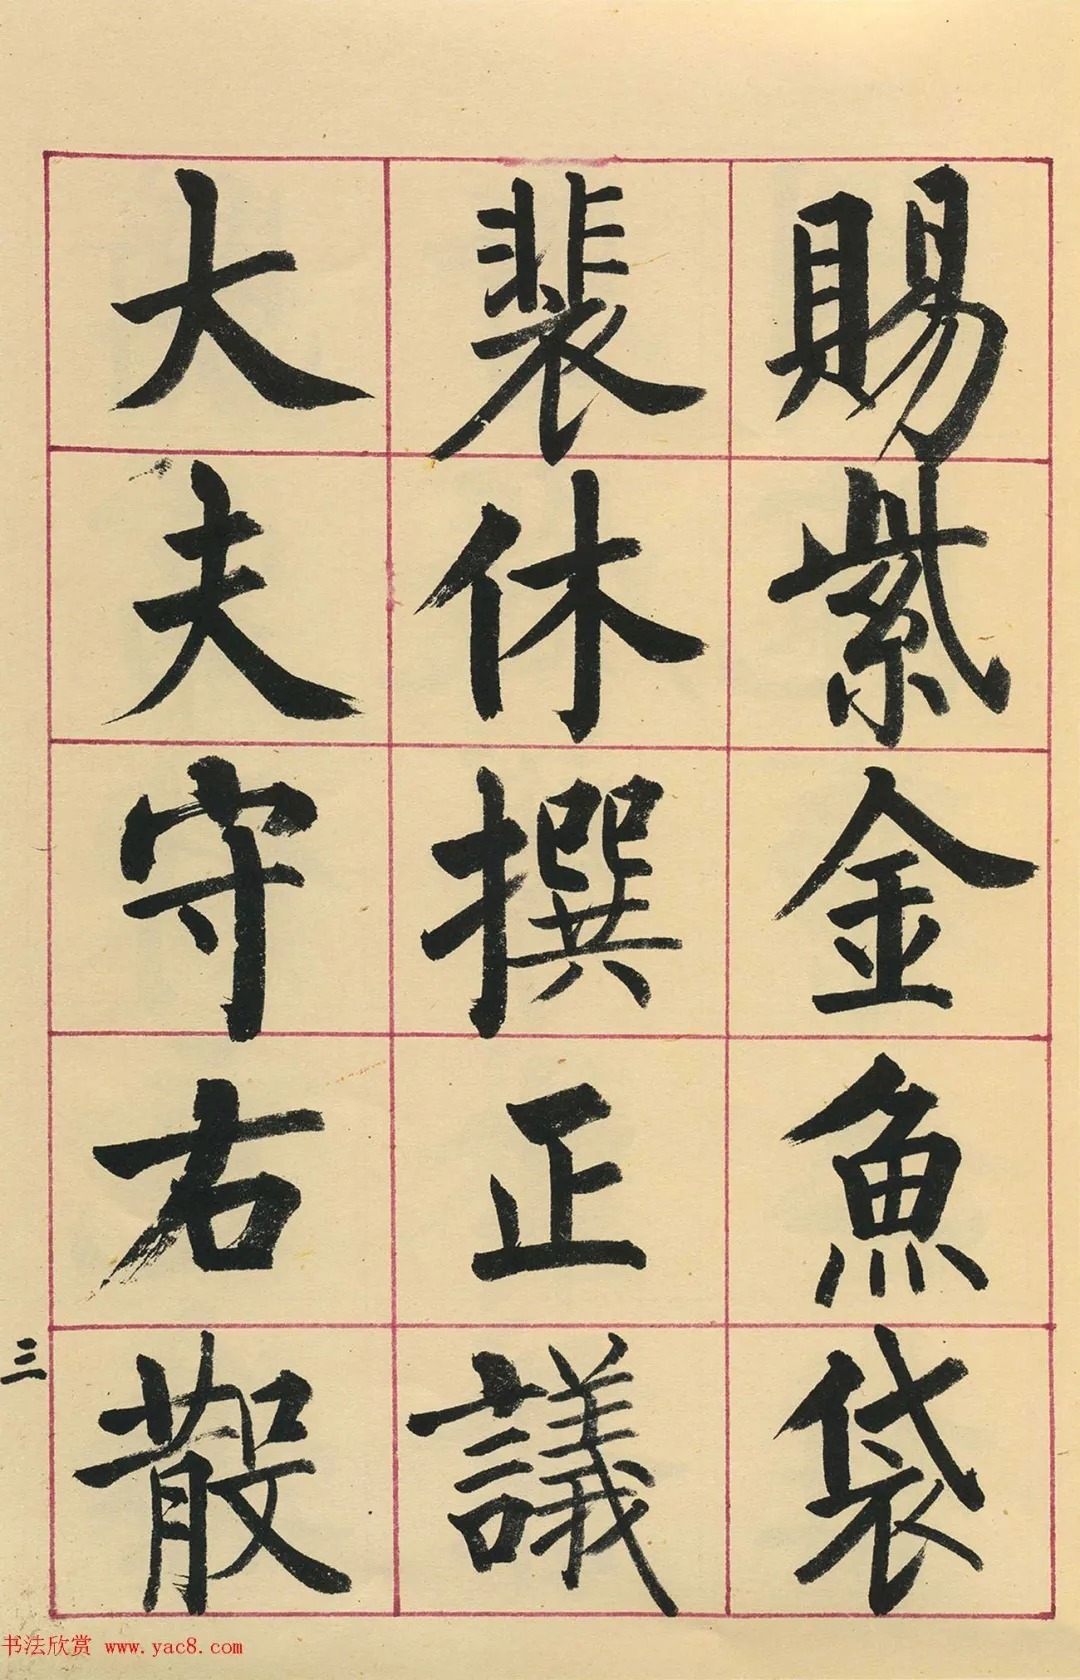 賜紫金魚袋
裴休撰正議
大夫守右散
三
书法欣赏 www.yac8.com